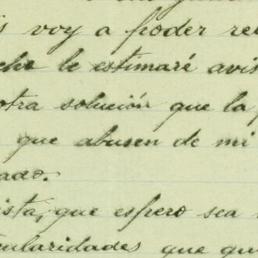 voy a poder re
che le estimaré avis
otra solución que la p
que abusen de mi
ado.
ista, que espero sea
cularidades que qu